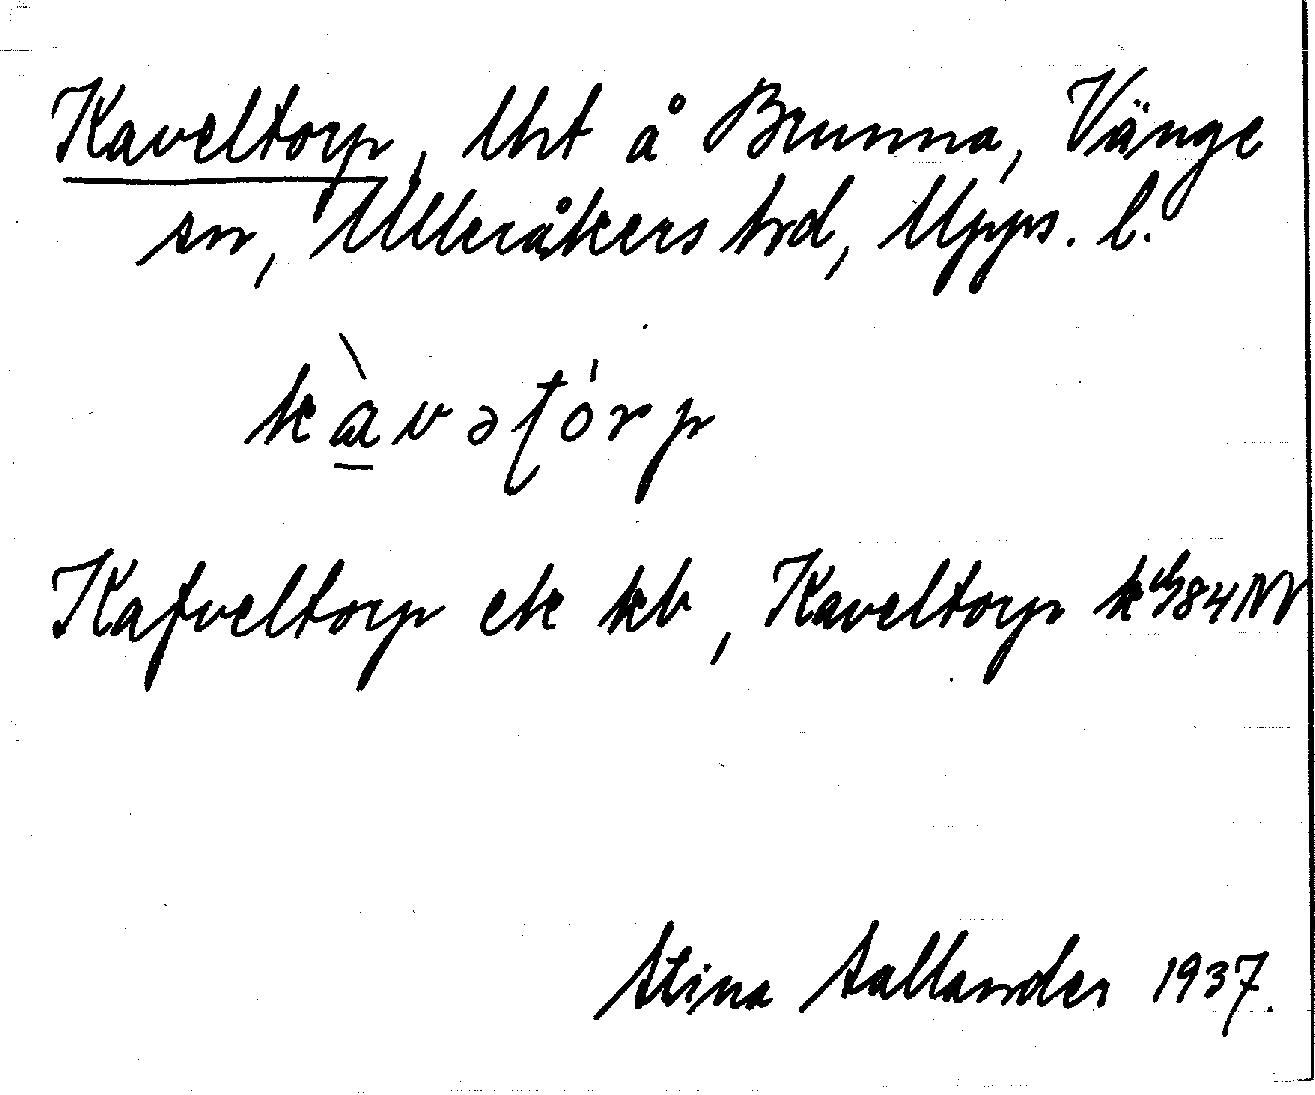 Kaveltorp, lht å Brunna, Vänge
sn, Ulleråkers hd, Upps. l.
kàvəʈórp
Kafveltorp ek kb, Kaveltorp k 84 NV
Stina Sallander 1937.